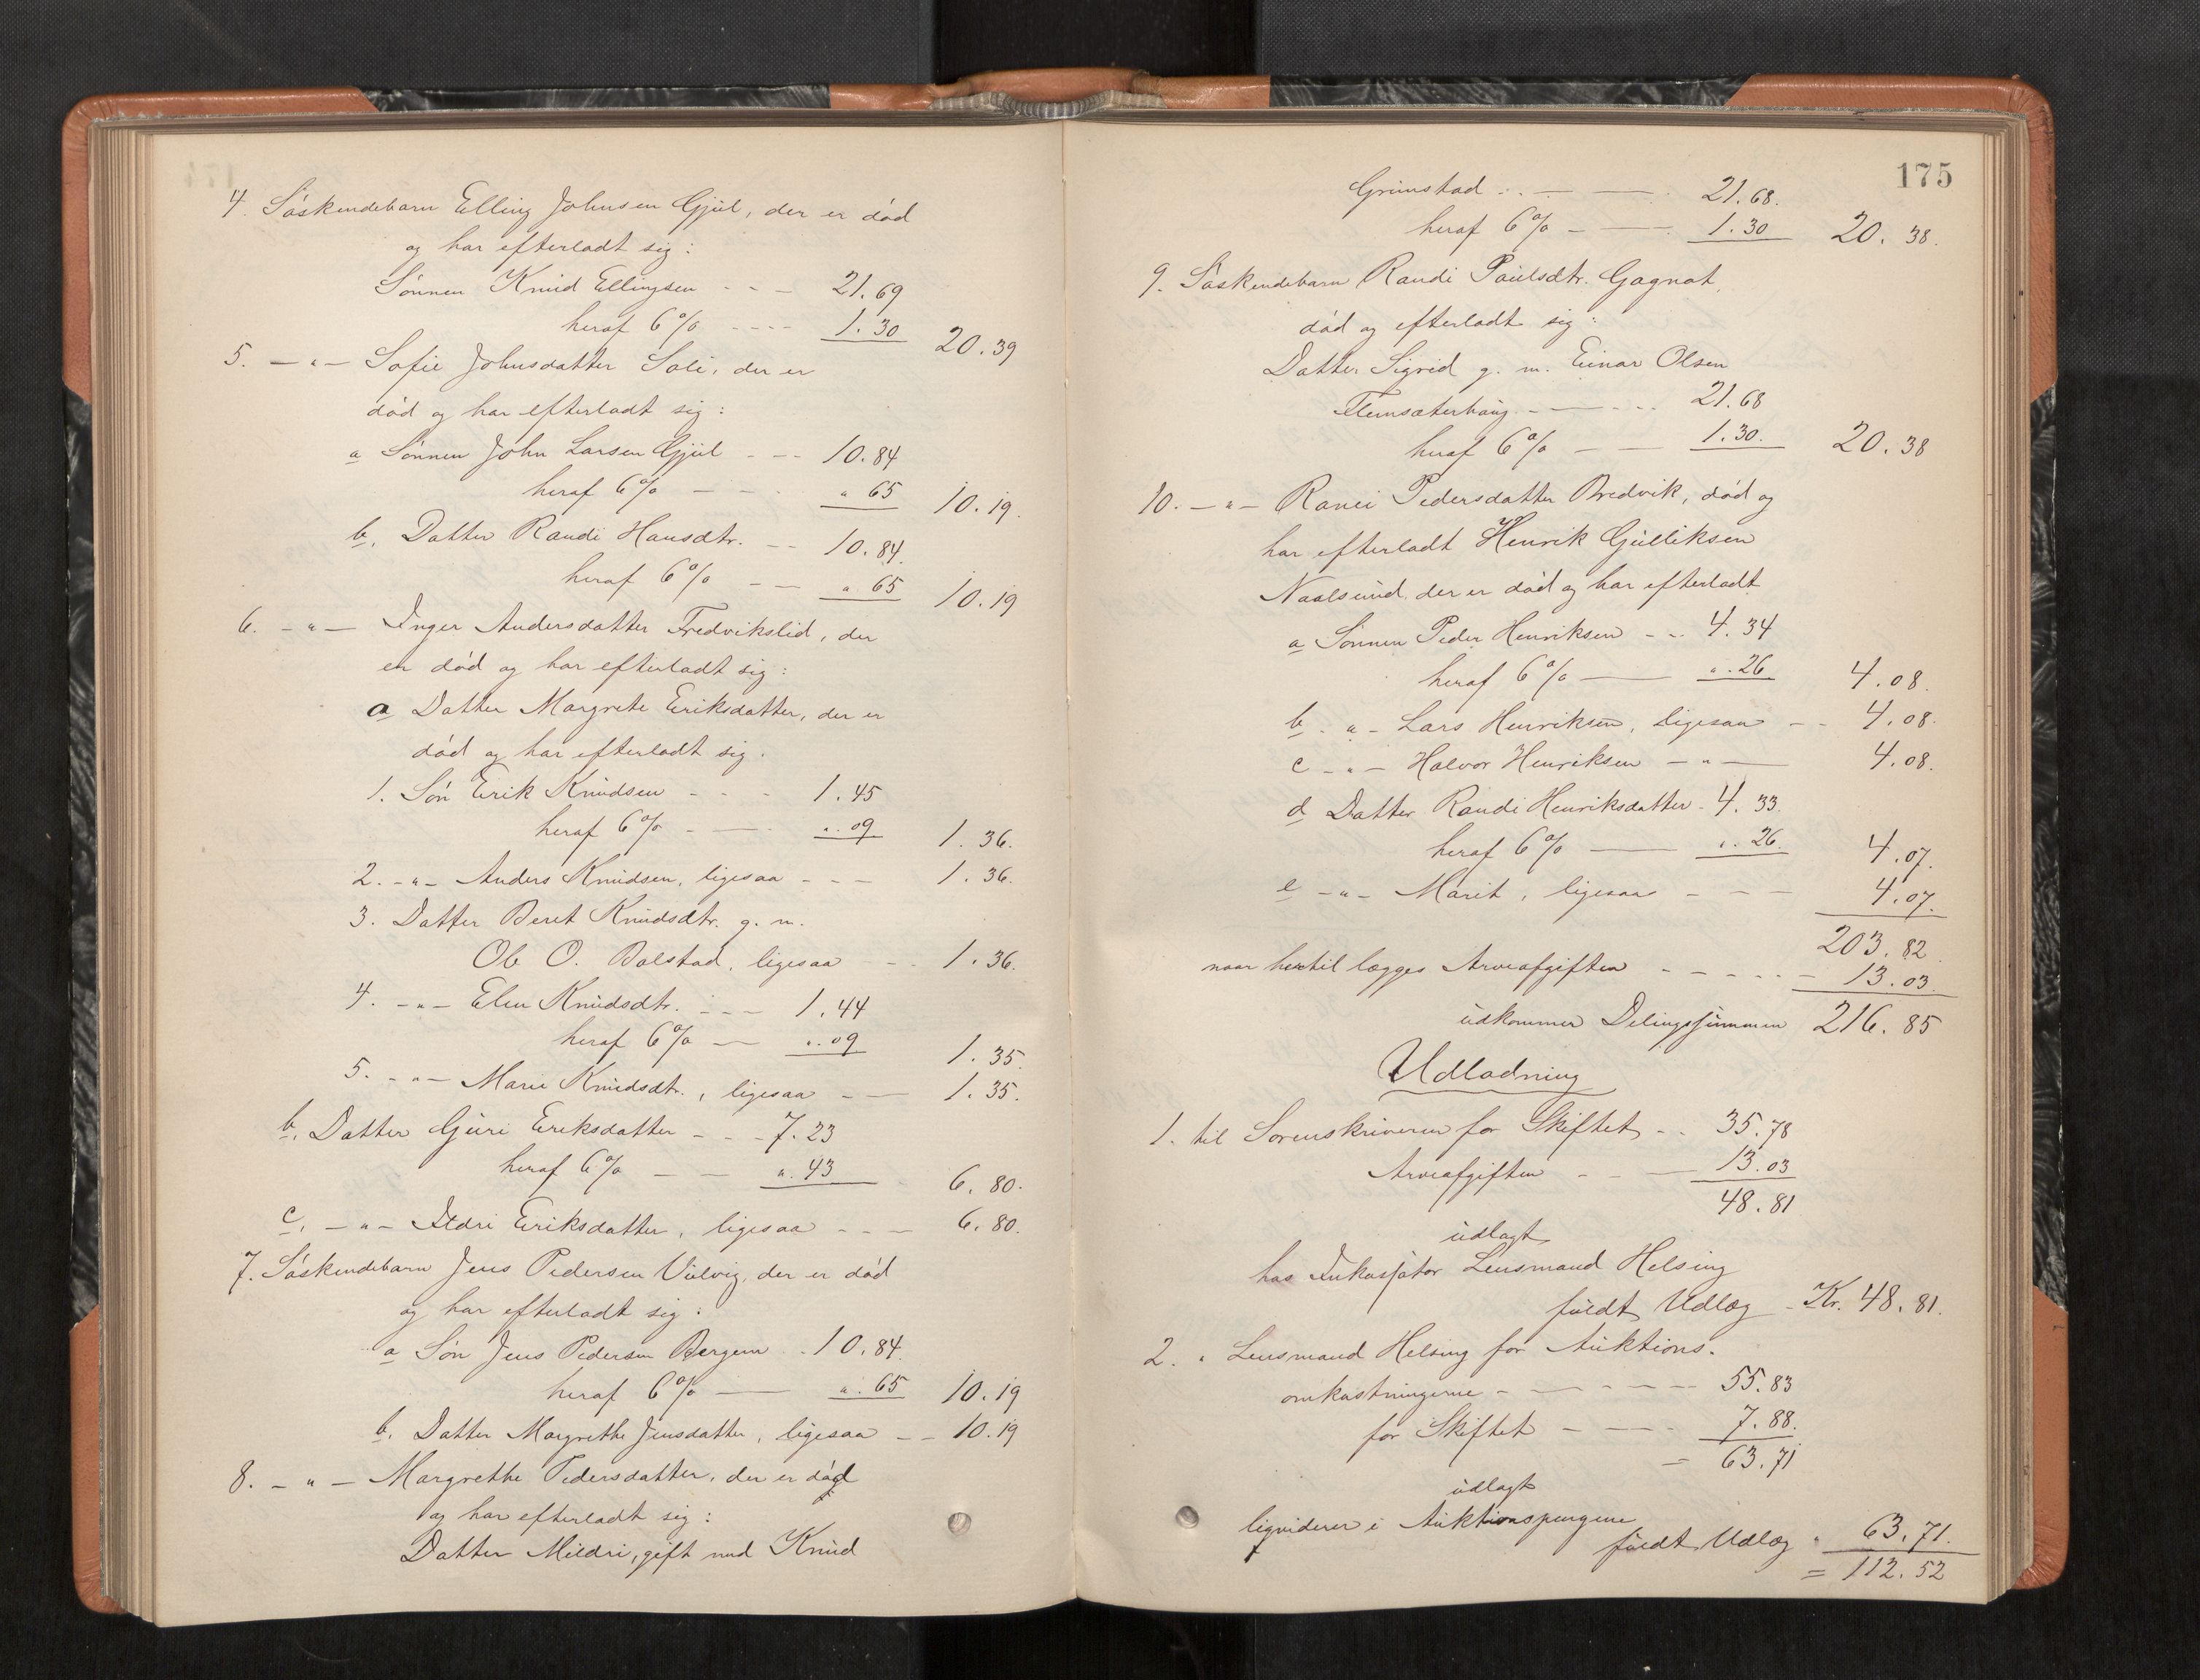 4. Söskendebarn Elling Johnsen Gjül, der er död
og har efterladt sig:
Sönnen Knud Ellingsen - - - 21.69
heraf 6% - - - - 1.30 20.39
5. - „ - Sofie Johnsdatter Soli, der er
död og har efterladt sig:
a Sönnen John Larsen Gjül - - - 10.84
heraf 6% - - - „ 65 10.19.
b. Datter Randi Hansdtr. - - 10.84.
heraf 6% - - „ 65 10.19
6. - „ - Inger Andersdatter Fredvikslid, der
er död og har efterladt sig:
a Datter Margrete Eriksdatter, der er
död og har efterladt sig.
1. Sön Erik Knudsen - - - 1.45
heraf 6% - - „.09 1.36.
2. - „ - Anders Knudsen, ligesaa - - - 1.36.
3. Datter Beret Knudsdtr. g. m.
Ole O. Bolstad, ligesaa - - 1.36.
4. - „ - Elen Knudsdtr. - - - 1.44
heraf 6% - „.09 1.35.
5. - „ - Marie Knudsdtr., ligesaa - - 1.35.
b. Datter Guri Eriksdatter - - - 7.23
heraf 6% - - „.43 6.80.
c. - „ - Ildri Eriksdatter, ligesaa - - - 6.80.
7. Söskendebarn Jens Pedersen Vulvig, der er död
og har efterladt sig:
a Sön Jens Pedersen Bergem - 10.84.
heraf 6% - „.65 10.19
b. Datter Margrethe Jensdatter, ligesaa - - 10.19
8. - „ - Margrethe Pedersdatter, der er död
og har efterladt sig:
Datter Mildri, gift med Knud
175
Grimstad - - - - 21.68.
heraf 6% - - 1.30 20.38.
9. Söskendebarn Randi Paulsdtr. Gagnat,
död og efterladt sig:
Datter Sigrid g. m. Einar Olsen
Flemsæterhaug - - - - 21.68
heraf 6% - - 1.30. 20.38
10. - „ - Ranei Pedersdatter Bredvik, död og
har efterladt Henrik Gulliksen
Naalsund, der er död og har efterladt
a Sönnen Peder Henriksen - - 4.34
heraf 6% - „.26 4.08.
b - „ - Lars Henriksen, ligesaa - - 4.08.
c - „ - Halvor Henriksen - „ - 4.08.
d Datter Randi Henriksdatter - 4.33.
heraf 6% - „.26. 4.07.
e - „ - Marit, ligesaa - - - 4.07.
203.82
naar hertil lægges Arveafgiften - - - - - 13.03.
udkommer Delingssummen 216.85
Udlodning
1. til Sorenskriveren for Skiftet - - 35.78
Arveafgiften - - - 13.03
48.81
udlagt
hos Inkassator Lensmand Helsing
fuldt Udlæg - Kr. 48.81.
2. „ Lensmand Helsing for Auktions-
omkostningerne - - - - - 55.83
for Skiftet - - - - 7.88.
= 63.71
udlagt
ligviderer i Auktionspengene
fuldt Udlæg „ 63.71.
= 112.52